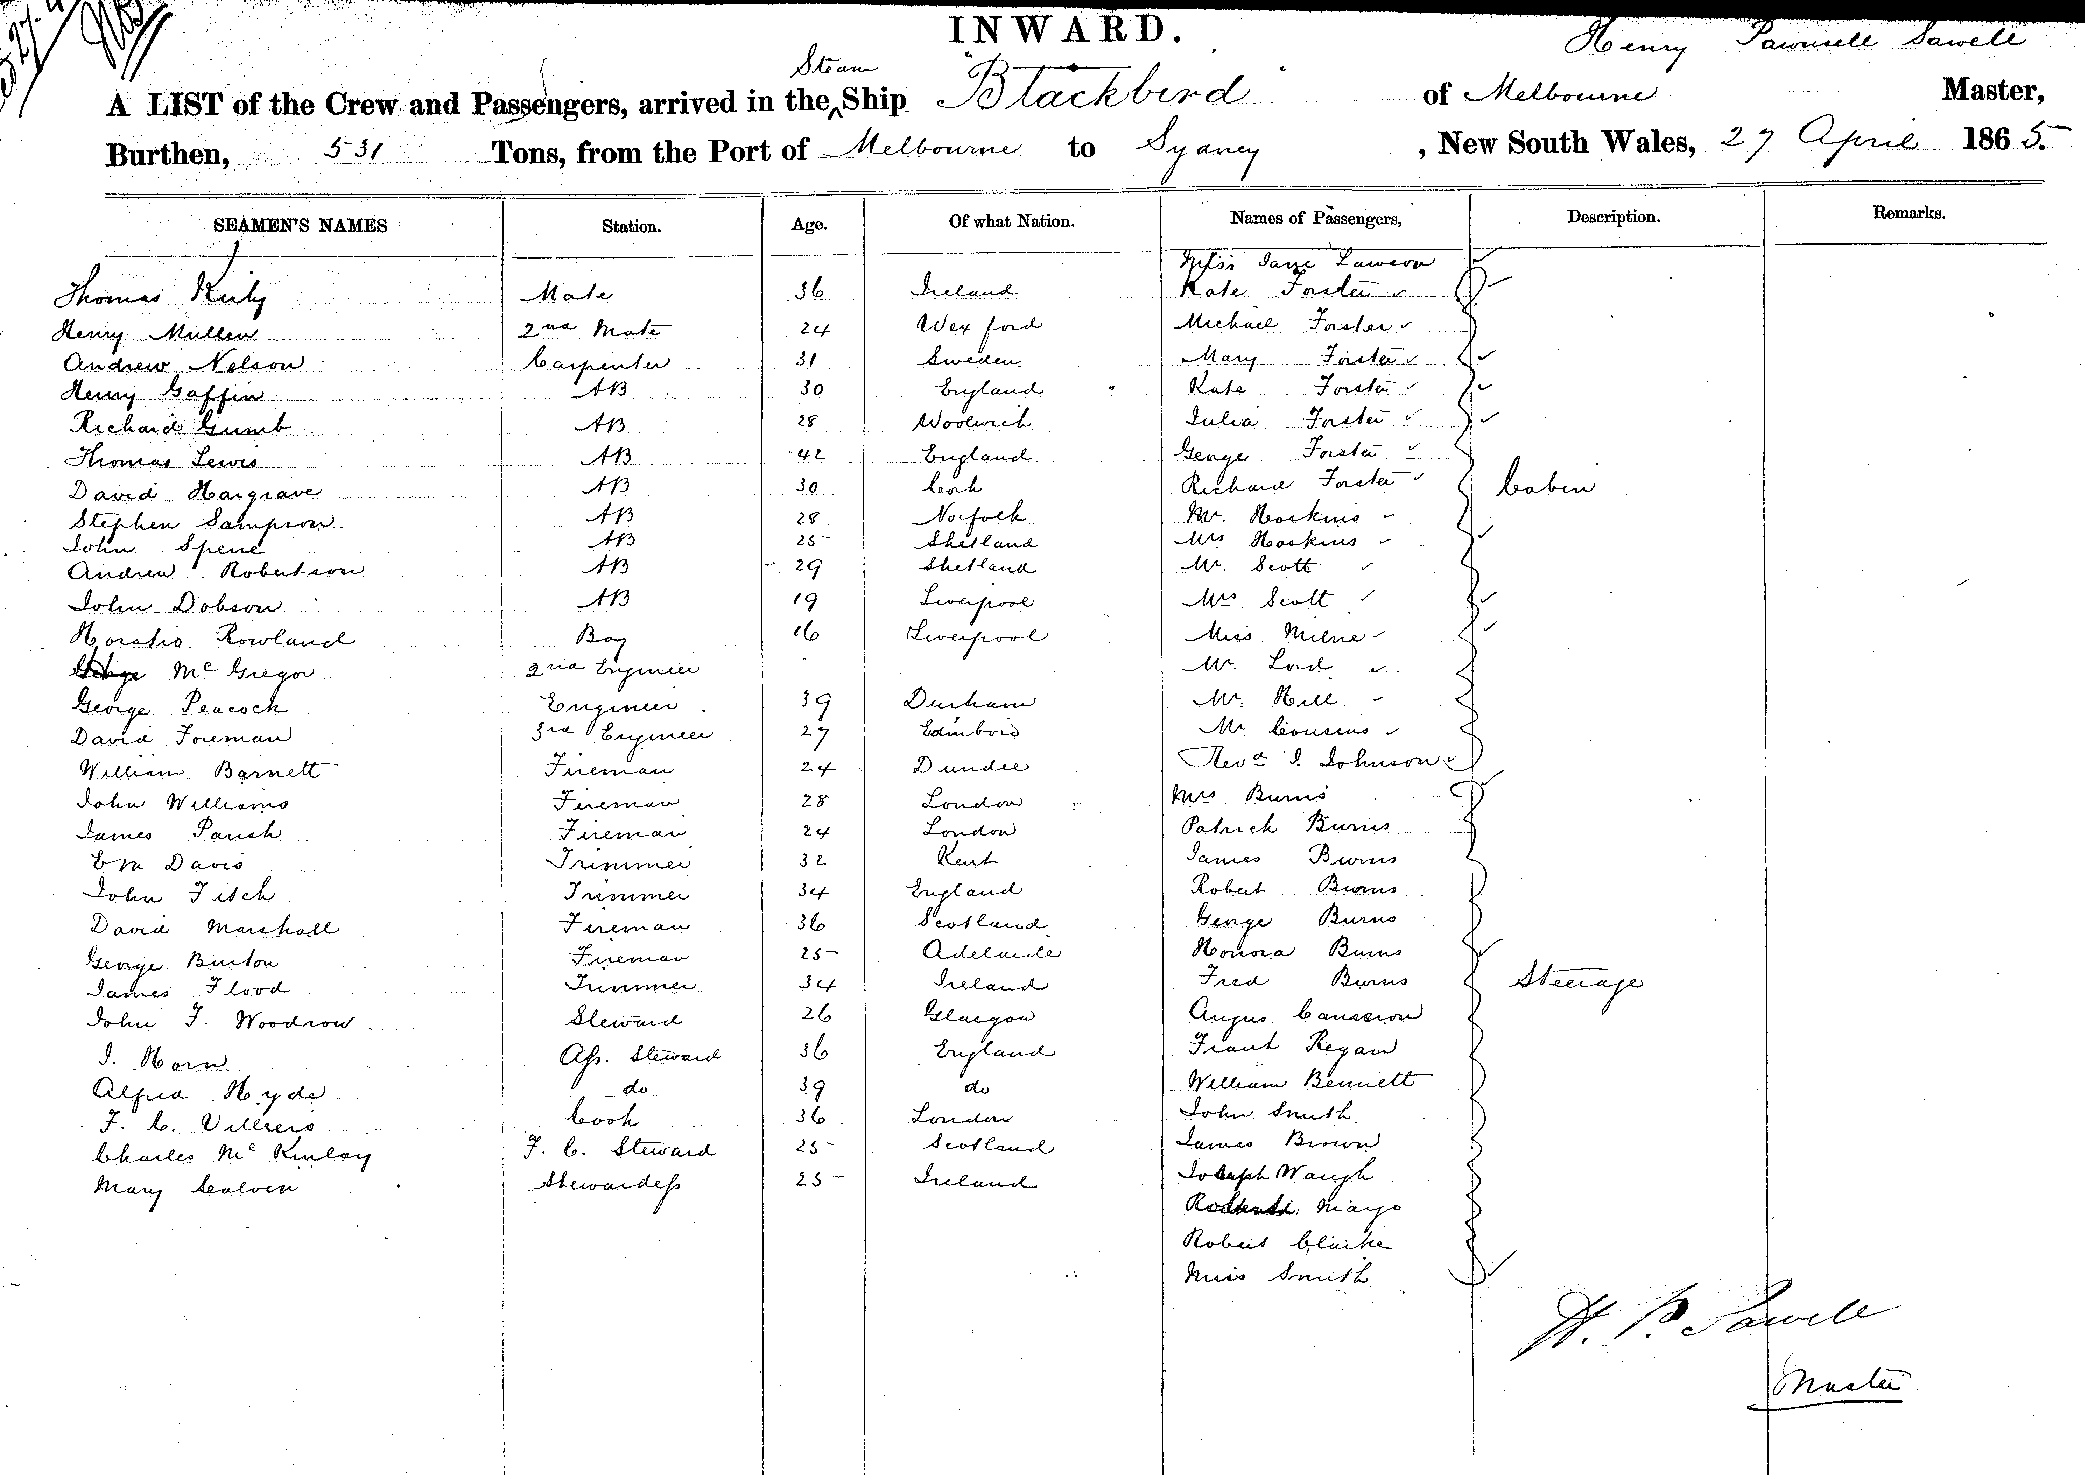 INWARD.
Henry Pownsell Sawell
Steam
A LIST of the Crew and Passengers, arrived in the ^ Ship "Blackbird" of Melbourne Master,
Burthen, 531 Tons, from the Port of Melbourne to Sydney, New South Wales, 27 April 1865.
SEAMEN'S NAMES Station. Age. Of what Nation. Names of Passengers, Description. Remarks.
Miss Jane Lawson
Thomas Mate 36 Ireland Kate Forster
Henry Mullen 2nd Mate 24 Wexford Michael Forster
Andrew Nelson Carpenter 31 Sweden Mary Forster
Henry Gaffin AB 30 England Kate Forster
Richard Gumb AB 28 Woolwich Julia Forster
Thomas Lewis AB 42 England George Forster
David Hargrave AB 30 Cork Richard Forster Cabin
Stephen Sampson AB 28 Norfolk Mr. Hoskins
John Spence AB 25 Shetland Mrs Hoskins
Andrew Robertson AB 29 Shetland Mr. Scott
John Dobson AB 19 Liverpool Mrs Scott
Horatio Rowland Boy 16 Liverpool Miss Milne
McGregor 2nd Engineer Mr. Lord
George Peacock Engineer 39 Durham Mr. Hill
David Foreman 3rd Engineer 27 Edinboro Mr. Cousens
William Barnett Fireman 24 Dundee Revd J. Johnson
John Williams Fireman 28 London Mrs Burns
James Parish Fireman 24 London Patrick Burns
Davis Trimmer 32 Kent James Burns
John Fitch Trimmer 34 England Robert Burns
David Marshall Fireman 36 Scotland George Burns
George Burton Fireman 25 Adelaide Honora Burns
James Flood Trimmer 34 Ireland Fred Burns Steerage
John F. Woodrow Steward 26 Glasgow Angus Cameron
J. Horn Ass. Steward 36 England Frank Regan
Alfred Hyde do 39 do William Bennett
F. C. Villiers Cook 36 London John Smith
Charles McKinlay F. C. Steward 25 Scotland James Brown
Mary Calvern Stewardess 25 Ireland Joseph Waugh
Mayo
Robert Clarke
Miss Smith
H. P. Sawell
Master